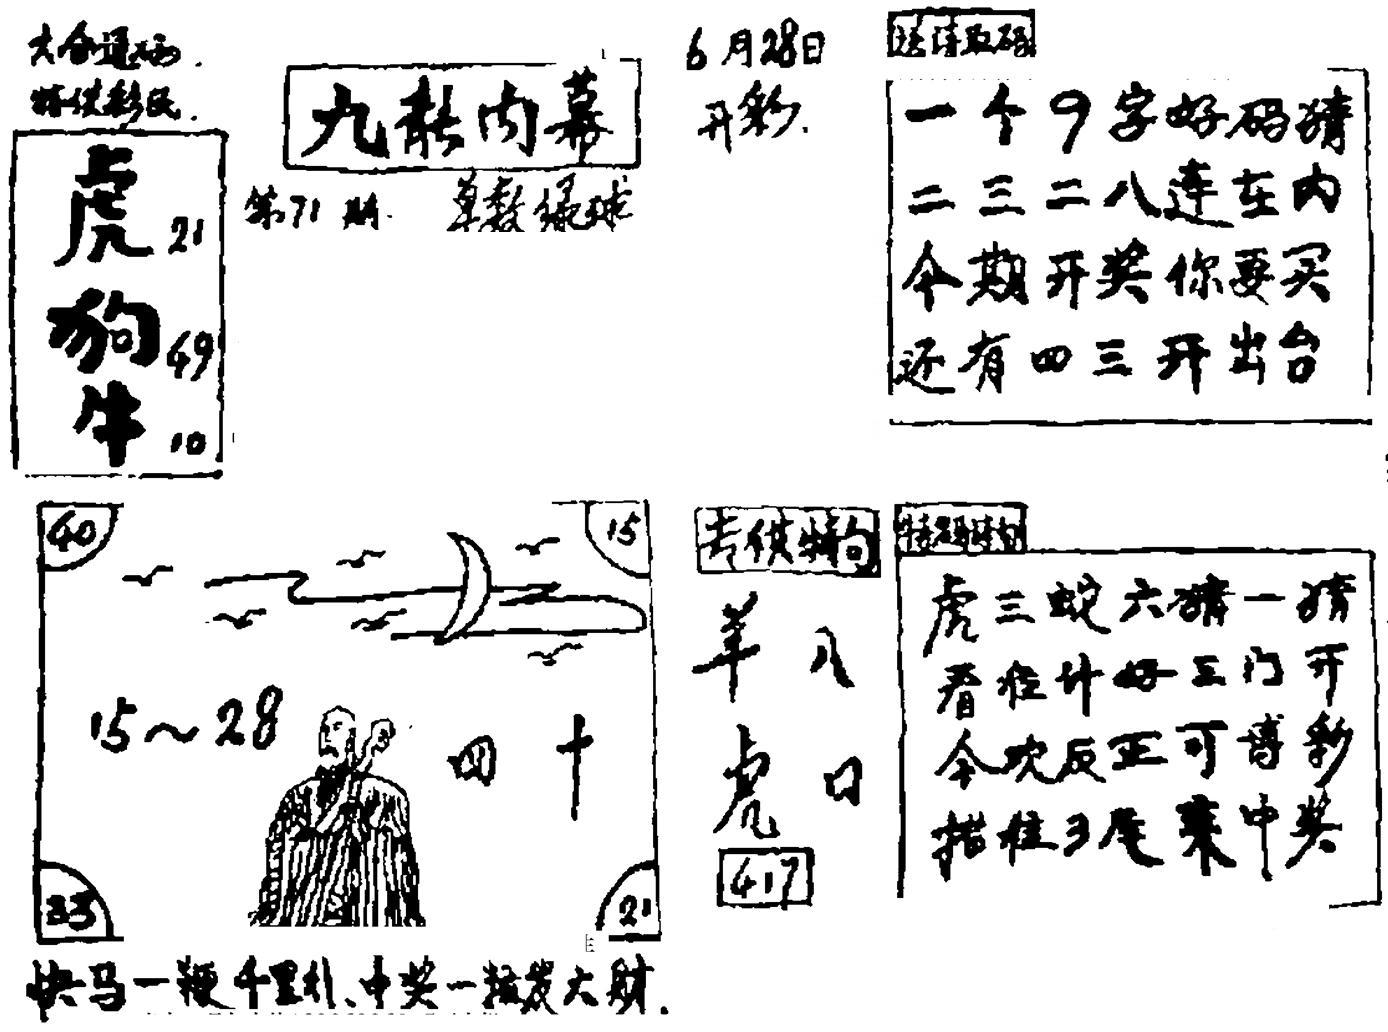 六合通码.
特供彩民.
九龍内幕
6月28日
开彩.
第71期. 单数绿球
虎 21
狗 49
牛 10
一个9字好码猜
二三二八连在内
今期开奖你要买
还有四三开出台
40
15
15～28
四十
33
21
快马一鞭千里扎、中奖一拉发大财.
专供特句
羊 八
虎 口
417
虎三蛇六猜一猜
看准计好三门开
今次反正可博彩
措准3尾来中奖